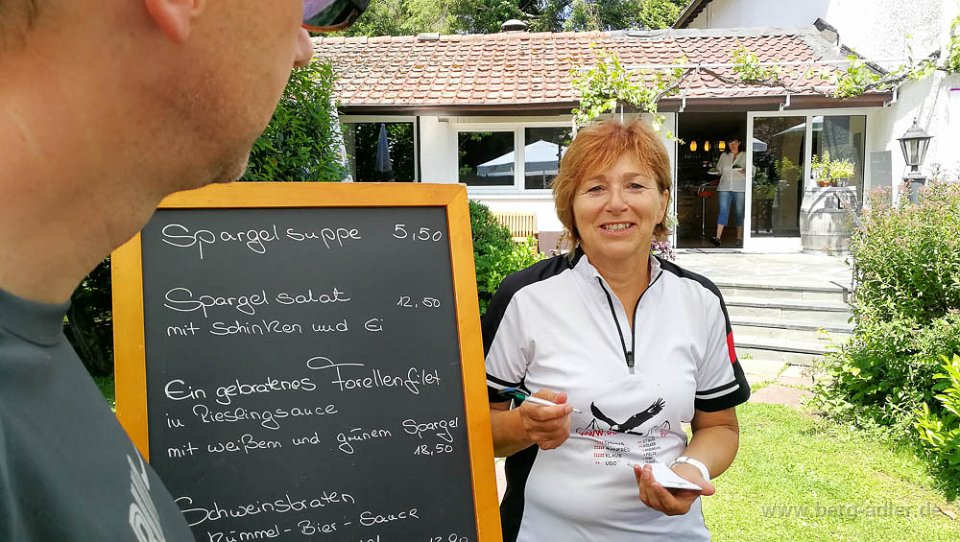 Spargelsuppe 5,50
Spargelsalat 12,50
mit Schinken und Ei
Ein gebratenes Forellenfilet
in Rieslingsauce
mit weißem und grünem Spargel
18,50
Schweinsbraten
Kümmel-Bier-Sauce
KLAUS
UDO
www.berg-adler.de